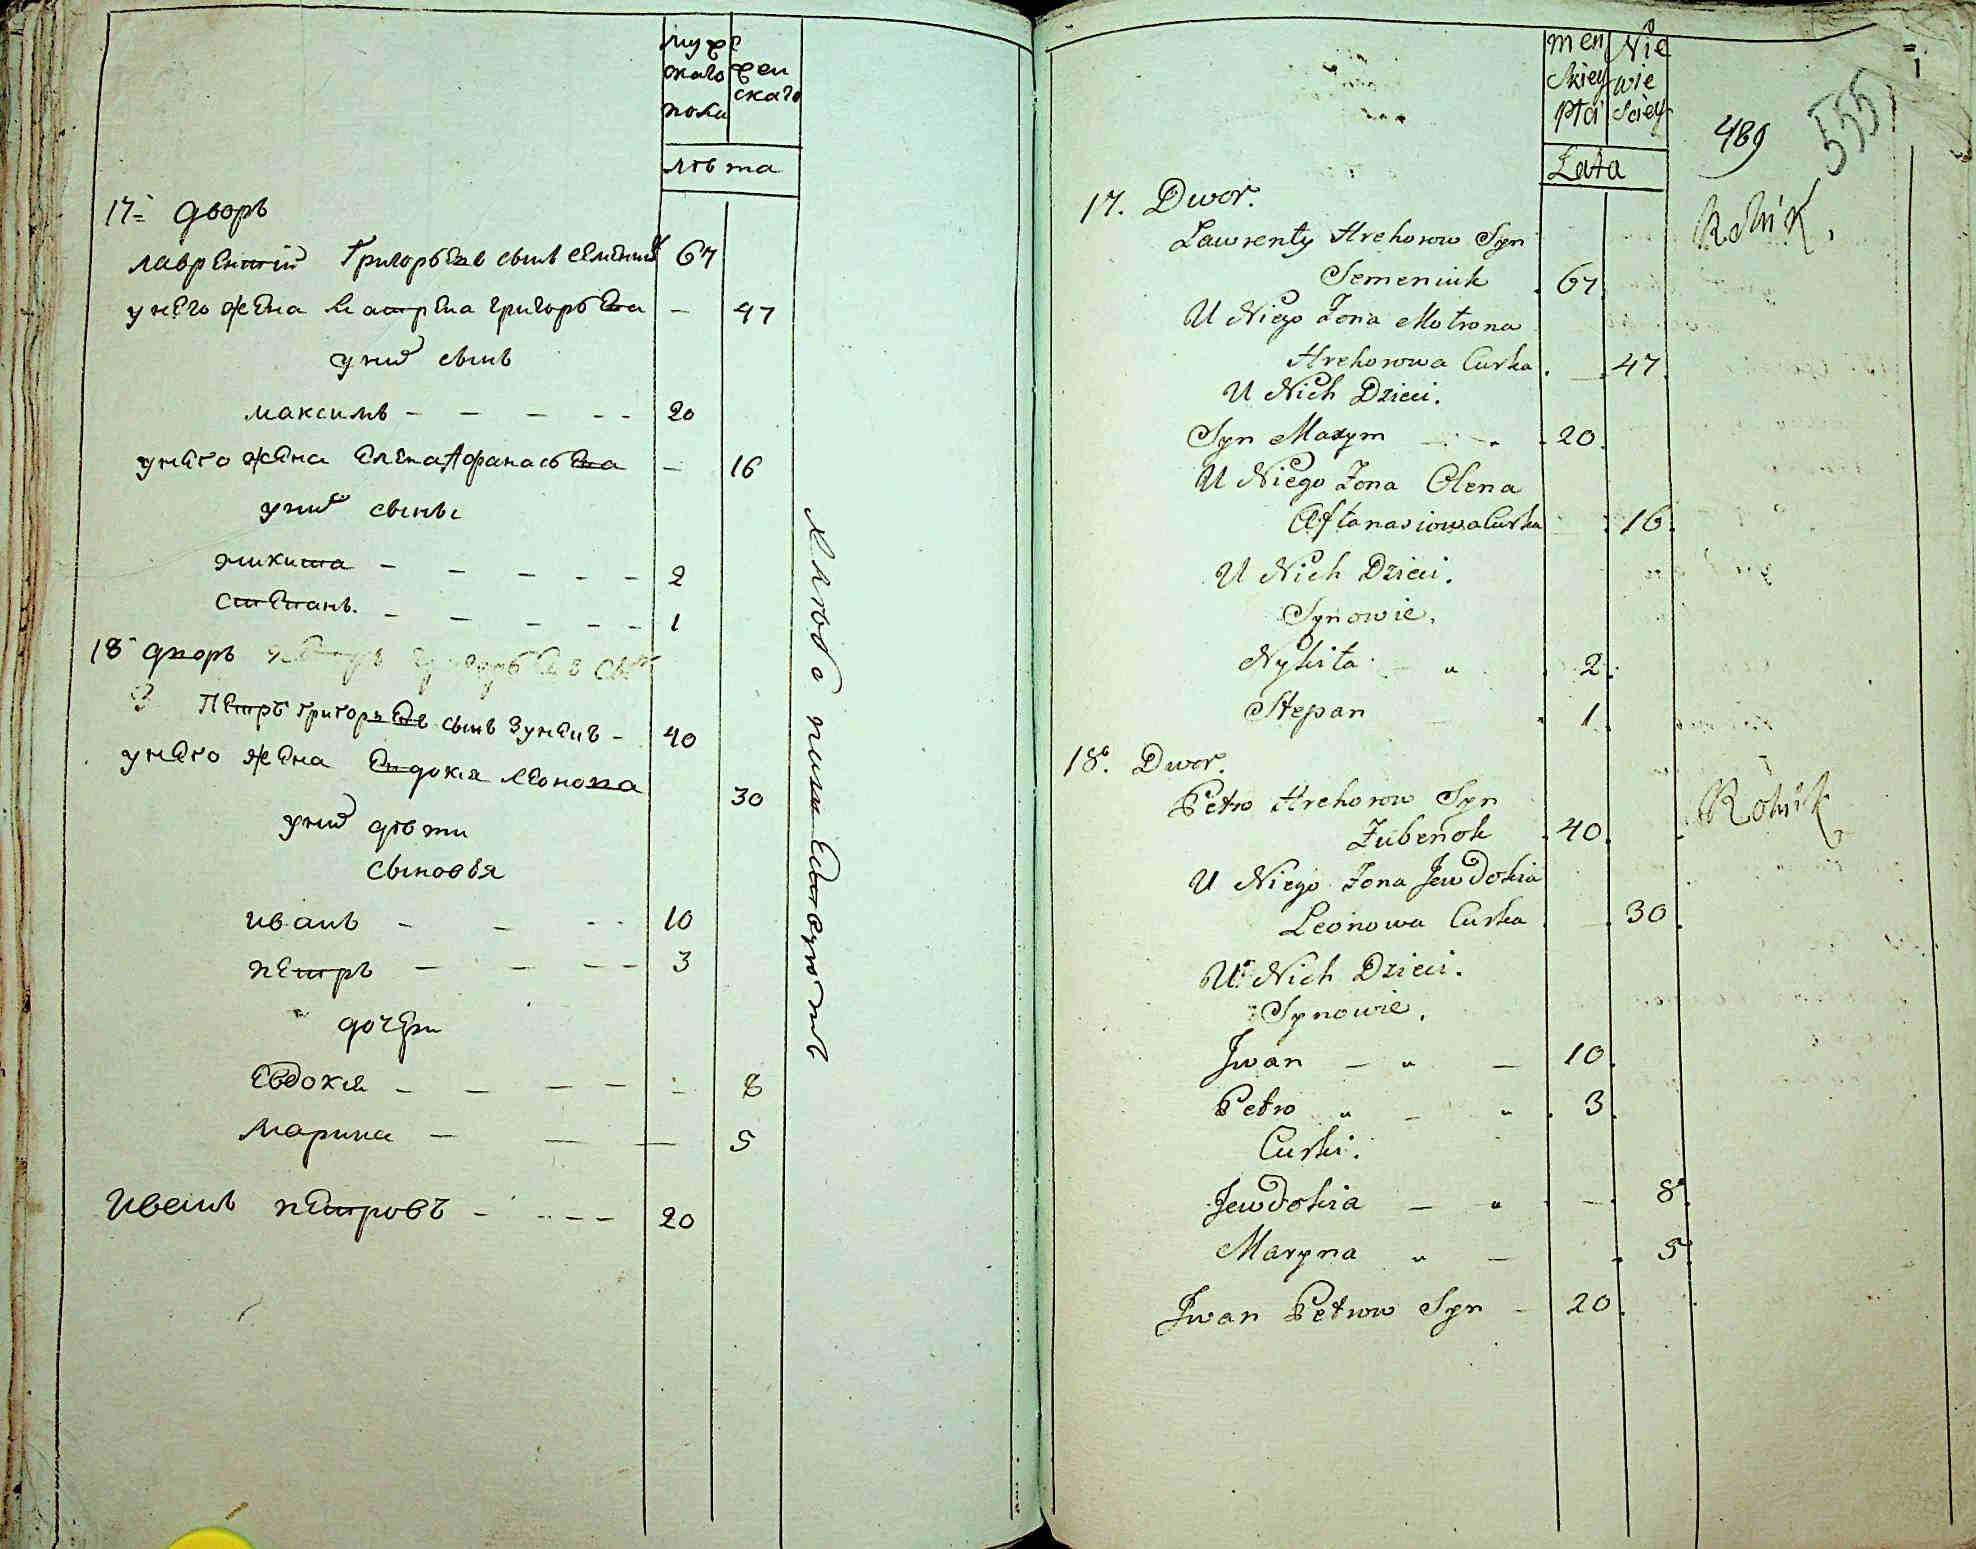 мужскаго пола
женскаго
лѣта
17= дворъ
лаврентій Григорьевъ сынъ семенюк 67
унего жена Матрена григорьева — 47
уних сынъ
максимъ — — — — - 20
унего жена Елена Афанасьева — 16
уних сыны
никита — — — — — 2
степанъ. — — — — — 1
18 дворъ петръ григорьевъ сын
Петръ григорьевъ сынъ Зубенъ — 40
унего жена Евдокія леонова 30
уних дѣти
сыновья
иванъ — — - - 10
петръ — — — — 3
дочери
Евдокія — — — — - 8
марина — — — 5
иванъ петровъ - - - - 20
хлѣбопашествуютъ
men skiey płci
Nie wie sciey
Lata
489
555
17. Dwor.
Lawrenty Hrehorow Syn
Rolnik,
Semeniuk 67
U Niego Zona Motrona
Hrehorowa Curka . — 47.
U Nich Dzieci.
Syn Maxym — „ . 20.
U Niego Zona Olena
Aftanasiowa Curka 16.
U Nich Dzieci.
Synowie.
Nykita — „ . 2.
Stepan . 1.
18. Dwor.
Petro Hrehorow Syn
Rolnik,
Zubenok . 40.
U Niego Zona Jewdokia
Leonowa Curka . — 30.
U Nich Dzieci.
Synowie.
Jwan — „ — 10.
Petro „ — „ . 3.
Curki.
Jewdokia — „ . — . 8.
Maryna „ — . 5.
Jwan Petrow Syn — 20.